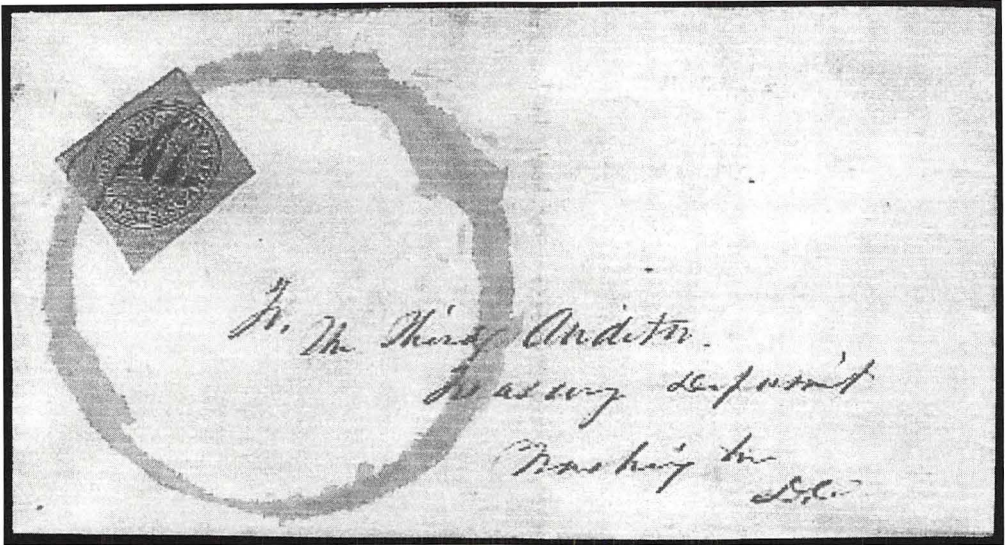 To, The Third Auditor.
Treasury Depermt
Washington
D.C.